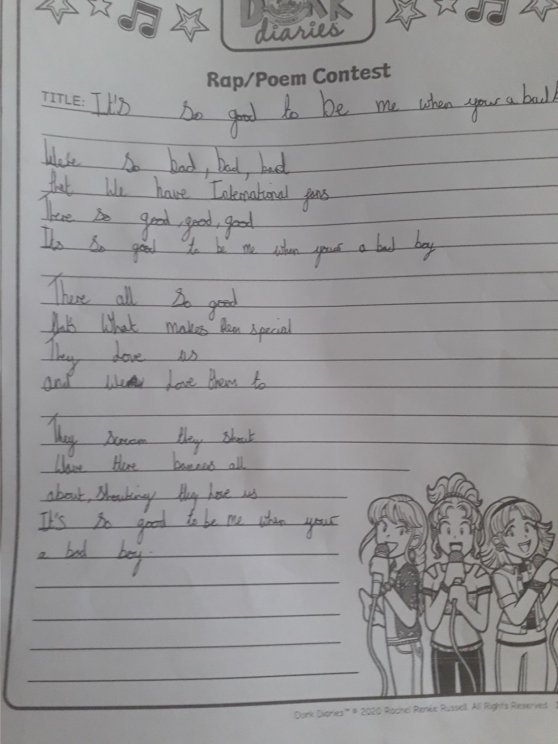 DORK
diaries
Rap/Poem Contest
TITLE: It's so good to be me when your a bad b
We're so bad, bad, bad
that We have International fans
There so good, good, good
Its so good to be me when your a bad boy
There all so good
thats What makes them special
They Love us
and we Love them to
They scream they shout
Wave there banners all
about, shouting they love us
It's so good to be me when your
a bad boy.
Dork Diaries™ © 2020 Rachel Renée Russell. All Rights Reserved.